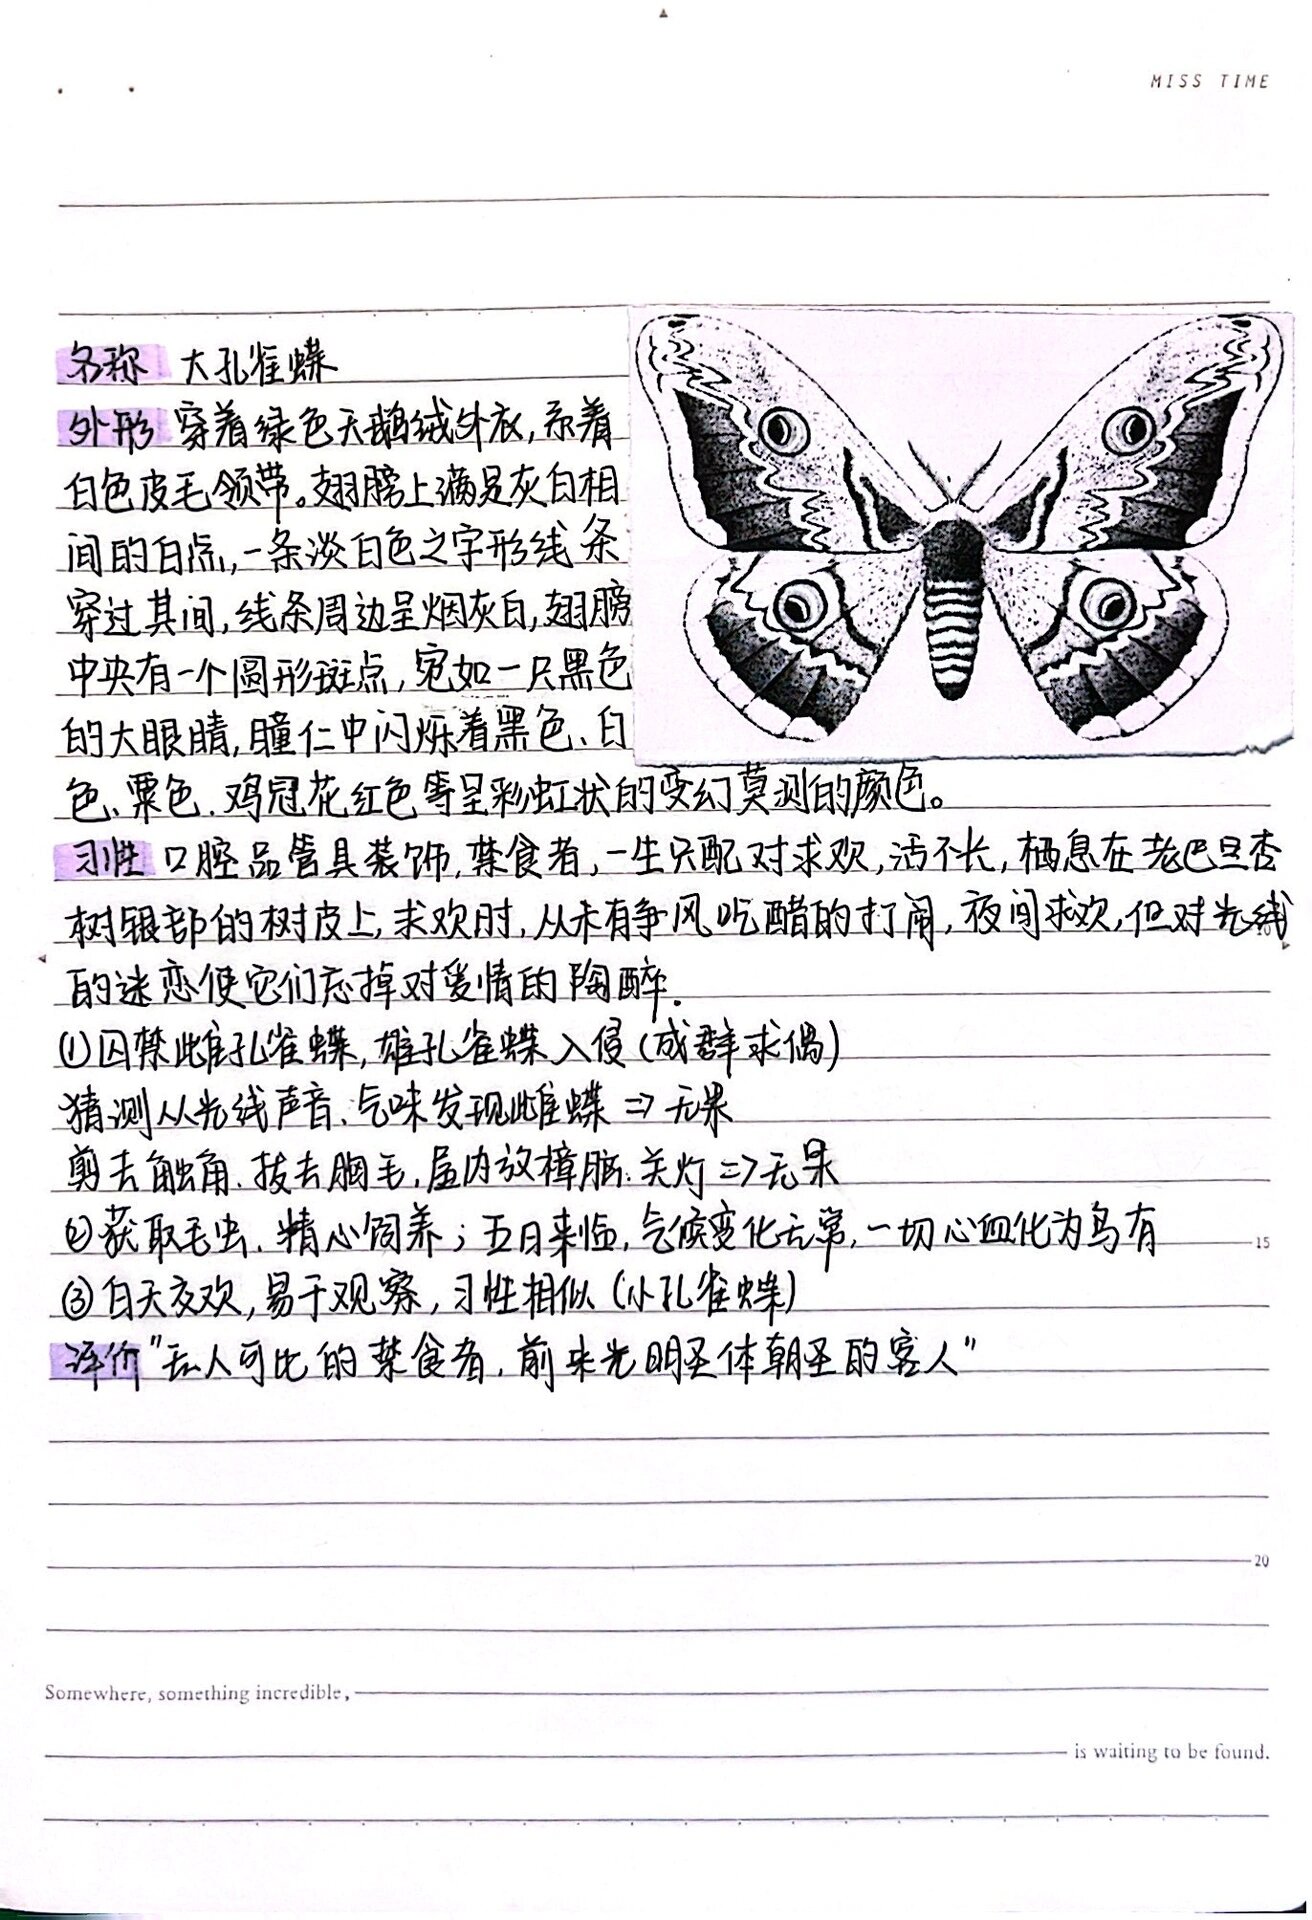 MISS TIME
名称 大孔雀蝶
外形 穿着绿色天鹅绒外衣,系着
白色皮毛领带。翅膀上满是灰白相
间的白点,一条淡白色之字形线条
穿过其间,线条周边呈烟灰白,翅膀
中央有一个圆形斑点,宛如一只黑色
的大眼睛,瞳仁中闪烁着黑色、白
色、栗色、鸡冠花红色等呈彩虹状的变幻莫测的颜色。
习性 口腔品管具装饰,禁食者,一生只配对求欢,活不长,栖息在老巴旦杏
树银部的树皮上,求欢时,从未有争风吃醋的打闹,夜间求欢,但对光线
的迷恋使它们忘掉对爱情的陶醉.
①囚禁雌孔雀蝶,雄孔雀蝶入侵(成群求偶)
猜测从光线声音、气味发现雌蝶⇒无果
剪去触角、拔去胸毛,屋内放樟脑、关灯⇒无果
②获取毛虫、精心饲养;五日来临,气候变化无常,一切心血化为乌有
③白天交欢,易于观察,习性相似(小孔雀蝶)
评价"无人可比的禁食者,前来光明圣体朝圣的客人"
15
20
Somewhere, something incredible,
is waiting to be found.